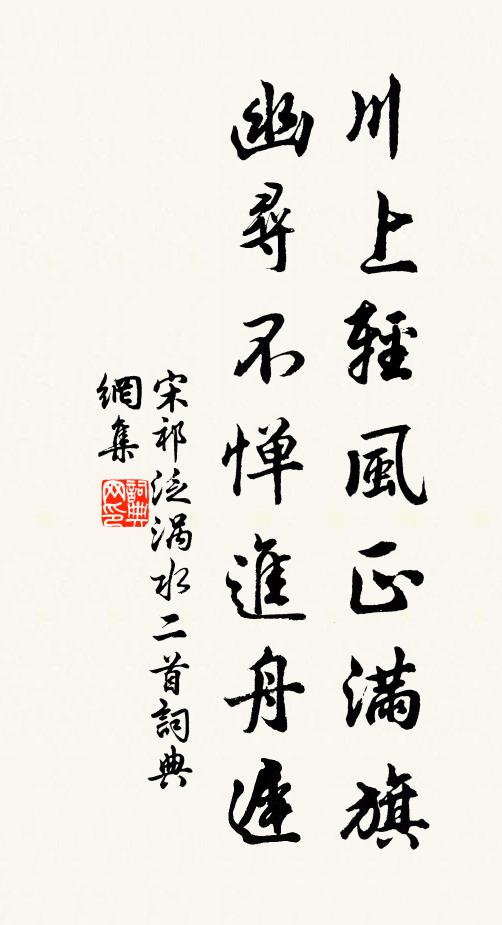 川上輕風正满旗
幽尋不惮進舟遲
宋祁泛涡水二首詞典
網集
詞典
网印